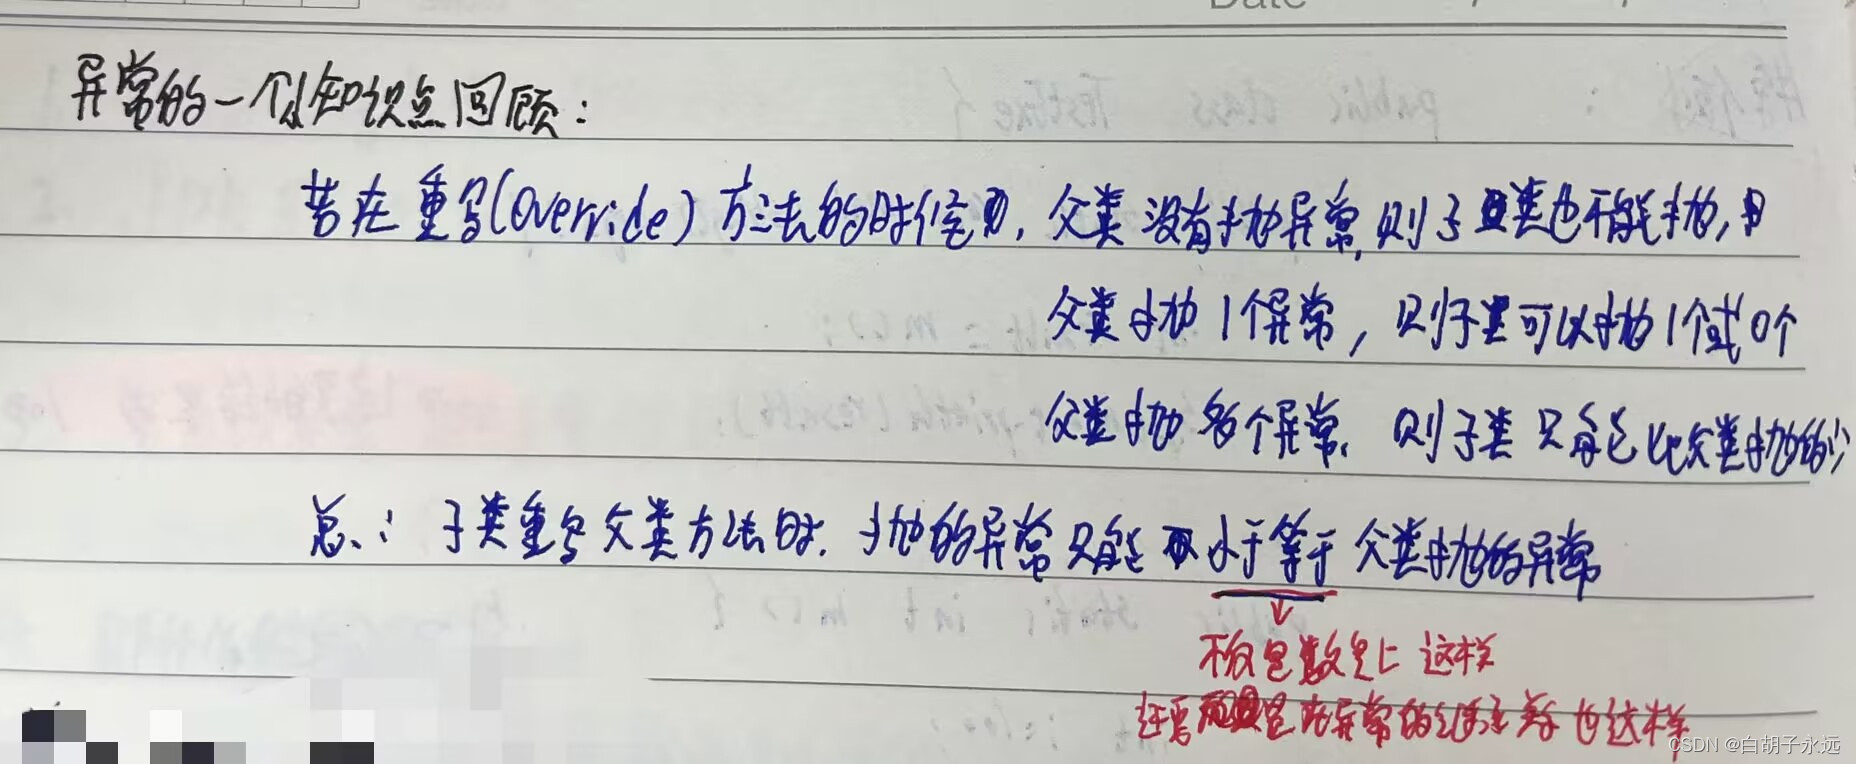 Date / /
异常的一个小知识点回顾：
若在重写(Override)方法的时候，父类没有抛异常，则子类也不能抛，
父类抛1个异常，则子类可以抛1个或0个
父类抛多个异常，则子类只能比父类抛的少
总：子类重写父类方法时，抛的异常只能小于等于父类抛的异常
不仅是数量上这样
还要在异常的继承关系也这样
CSDN @白胡子永远